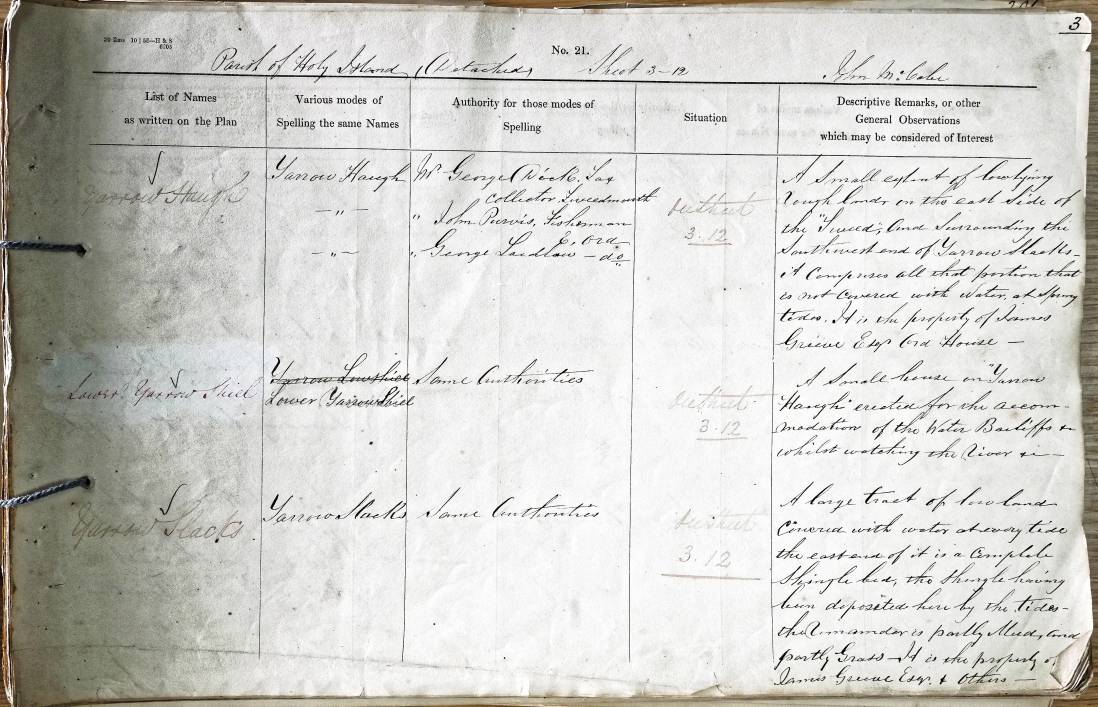 3
No. 21.
Parish of Holy Island (Detached) Sheet 3-12 John McCabe
List of Names
as written on the Plan
Various modes of
Spelling the same Names
Authority for those modes of
Spelling
Situation
Descriptive Remarks, or other
General Observations
which may be considered of Interest
Yarrow Haugh
Yarrow Haugh
—"—
—"—
Mr George Dick, Tax
collector Tweedmouth
" John Purvis, Fisherman
E. Ord
" George Laidlaw — do
3.12
A Small extent of lowlying
rough land on the east side of
the "Tweed", and Surrounding the
Southwest end of Yarrow Slacks-
it Comprises all that portion that
is not covered with water, at Spring
tides. It is the property of James
Grieve Esqr Ord House —
Lower Yarrow Shiel
Yarrow Lowshiel
Lower Yarrow Shiel
Same Authorities
3.12
A Small house on "Yarrow
Haugh" erected for the accom-
modation of the Water Bailiffs &
whilst watching the river &c —
Yarrow Slacks
Yarrow Slacks
Same Authorities
3.12
A large tract of low land
Covered with water at every tide
the east end of it is a Complete
Shingle bed, the Shingle having
been deposited here by the tides-
the remainder is partly Mud, and
partly Grass — It is the property of
James Grieve Esqr. & Others —